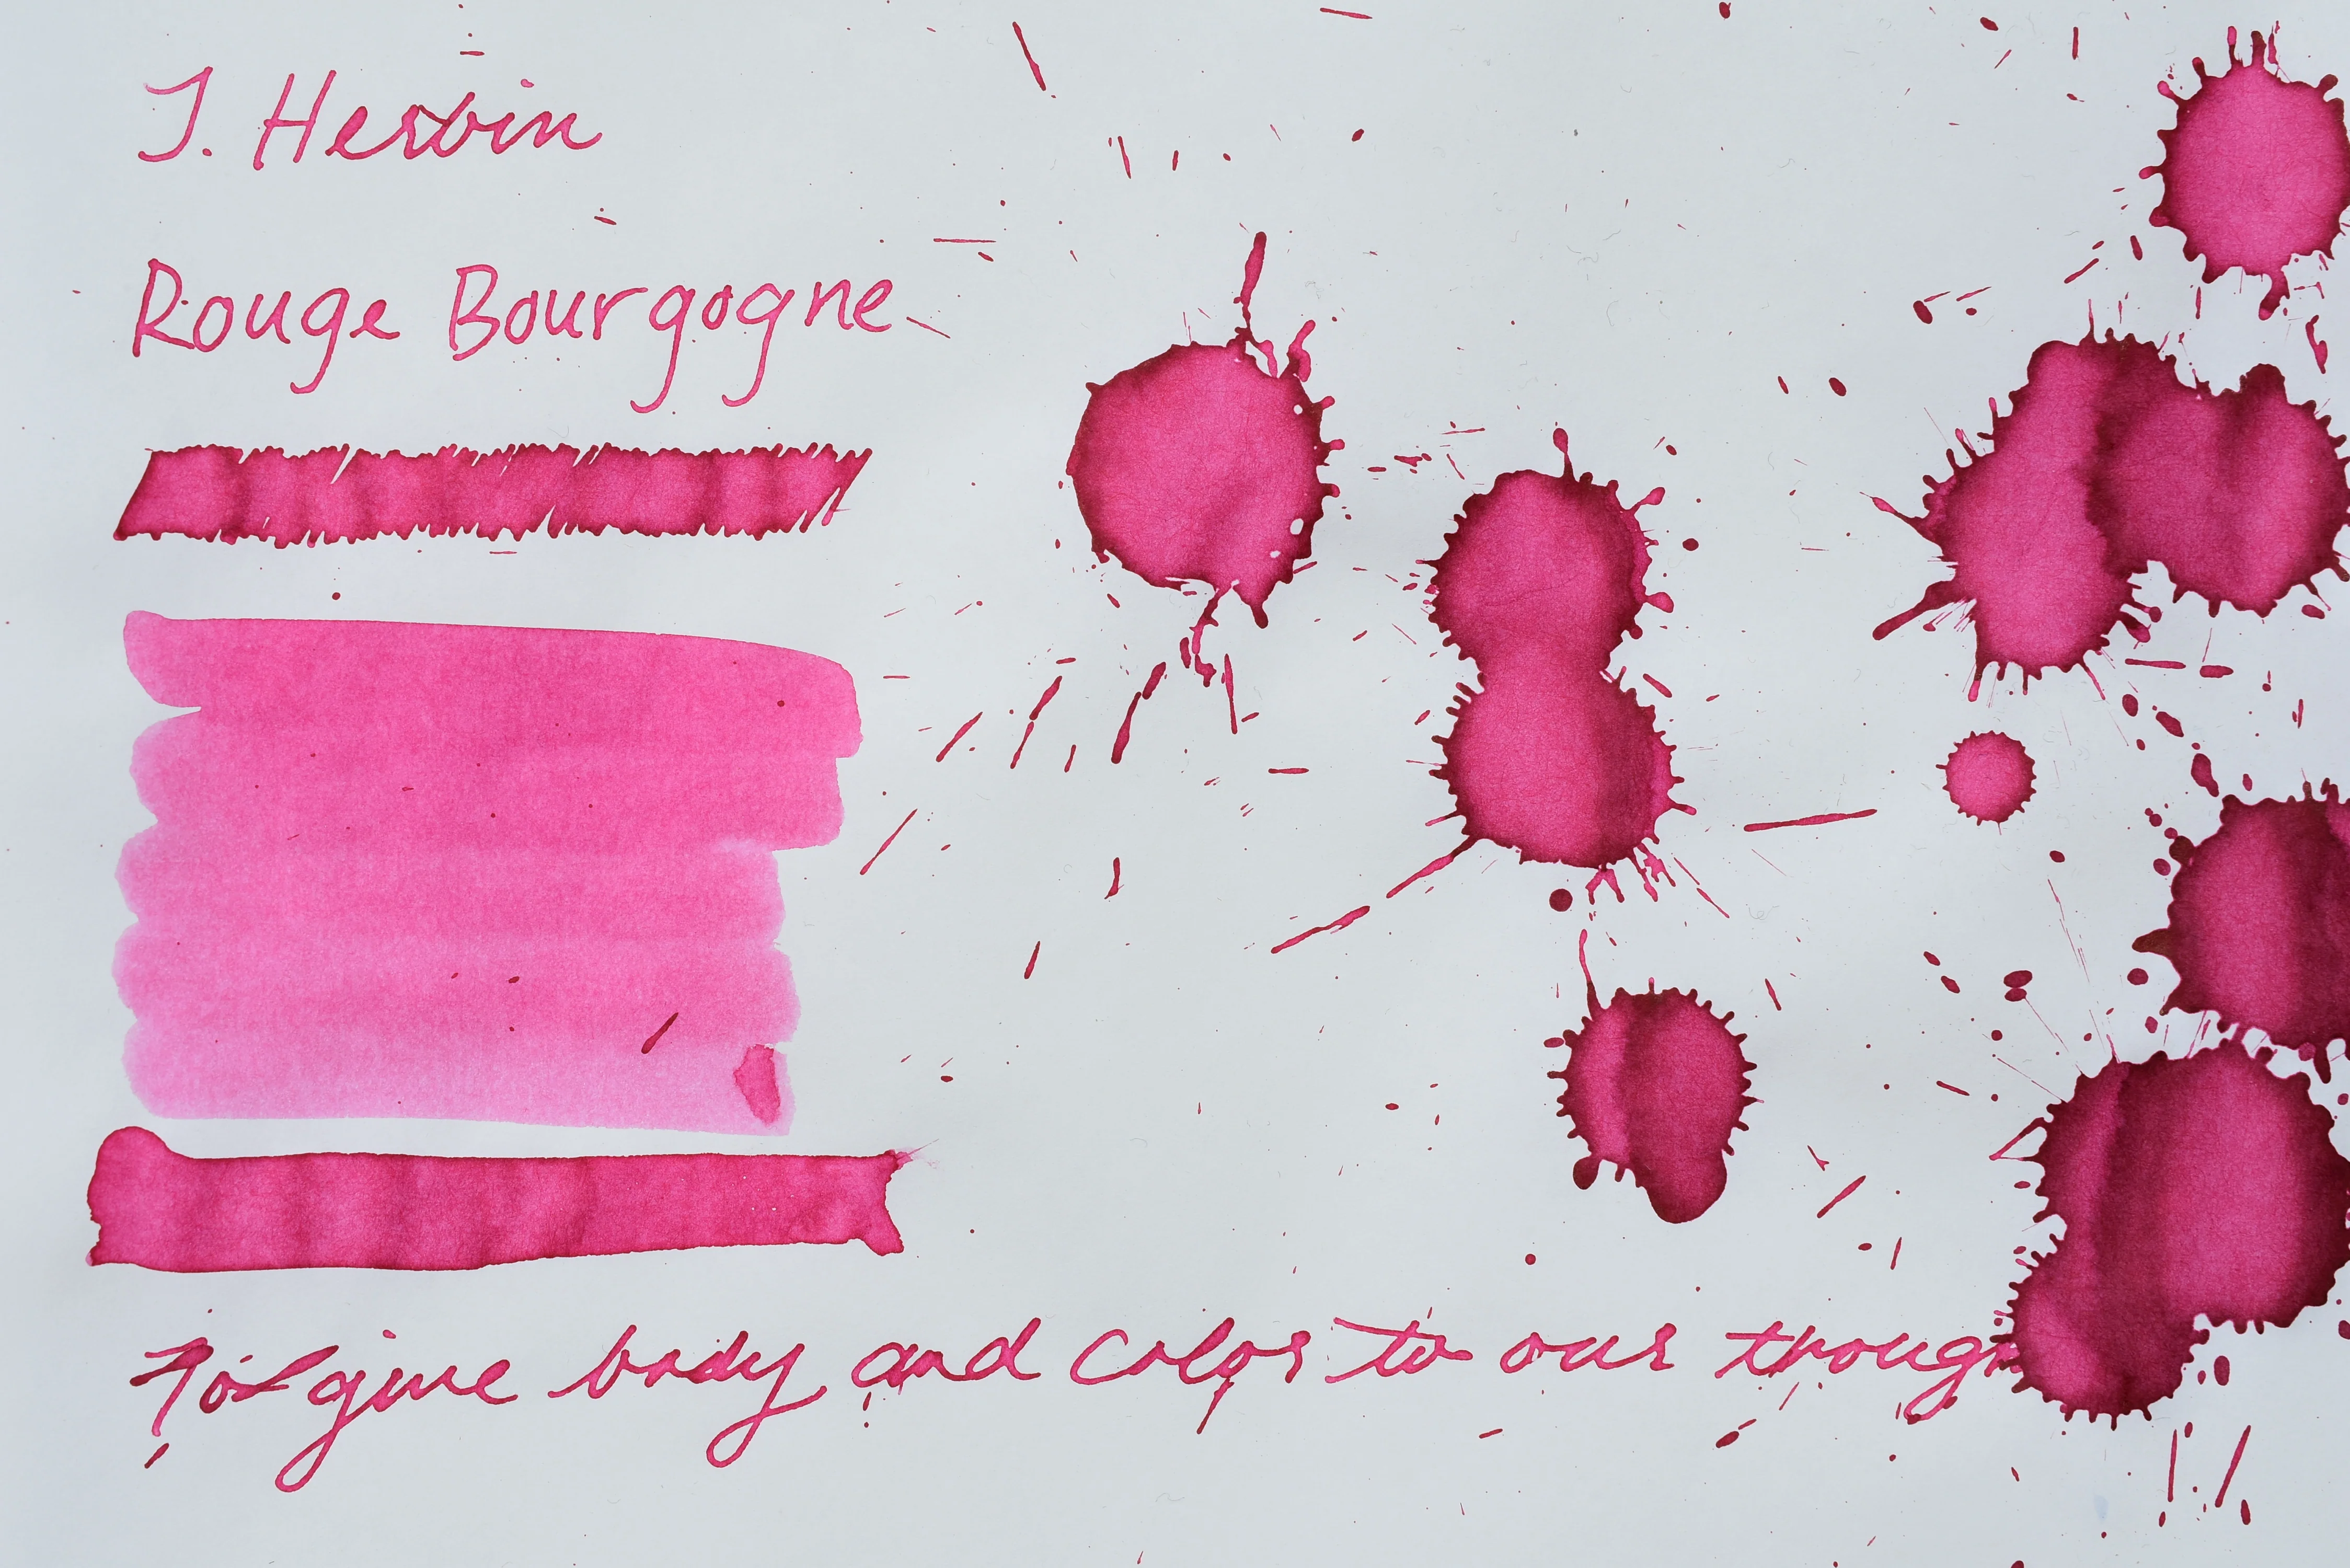 J. Herbin
Rouge Bourgogne
To give body and color to our thoug